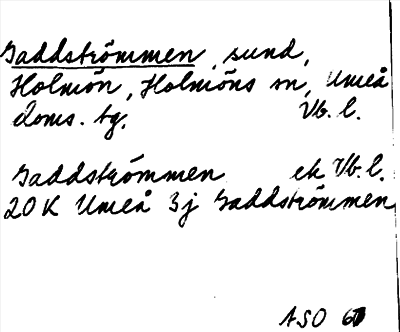 Gaddströmmen, sund,
Holmön, Holmöns sn, Umeå
doms. tg. Vb. l.
Gaddströmmen ek Vb. l.
20 K Umeå 3j Gaddströmmen
ASO